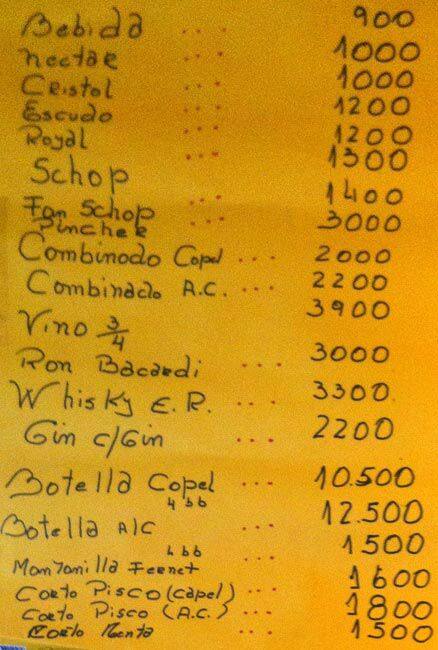 Bebida ... 900
Nectar ... 1000
Cristol ... 1000
Escudo ... 1200
Royal ... 1200
Schop ... 1300
Fan Schop ... 1400
Pincher ... 3000
Combinodo Capel ... 2000
Combinado A.C. ... 2200
Vino 3/4 3900
Ron Bacardi ... 3000
Whisky E.R. ... 3300
Gin c/Gin ... 2200
Botella Copel ... 10.500
4 bb
Botella A/C ... 12.500
4 bb
Manzanilla Fernet ... 1500
Corto Pisco (Capel) ... 1600
Corto Pisco (A.C.) ... 1800
Corto Menta ... 1500